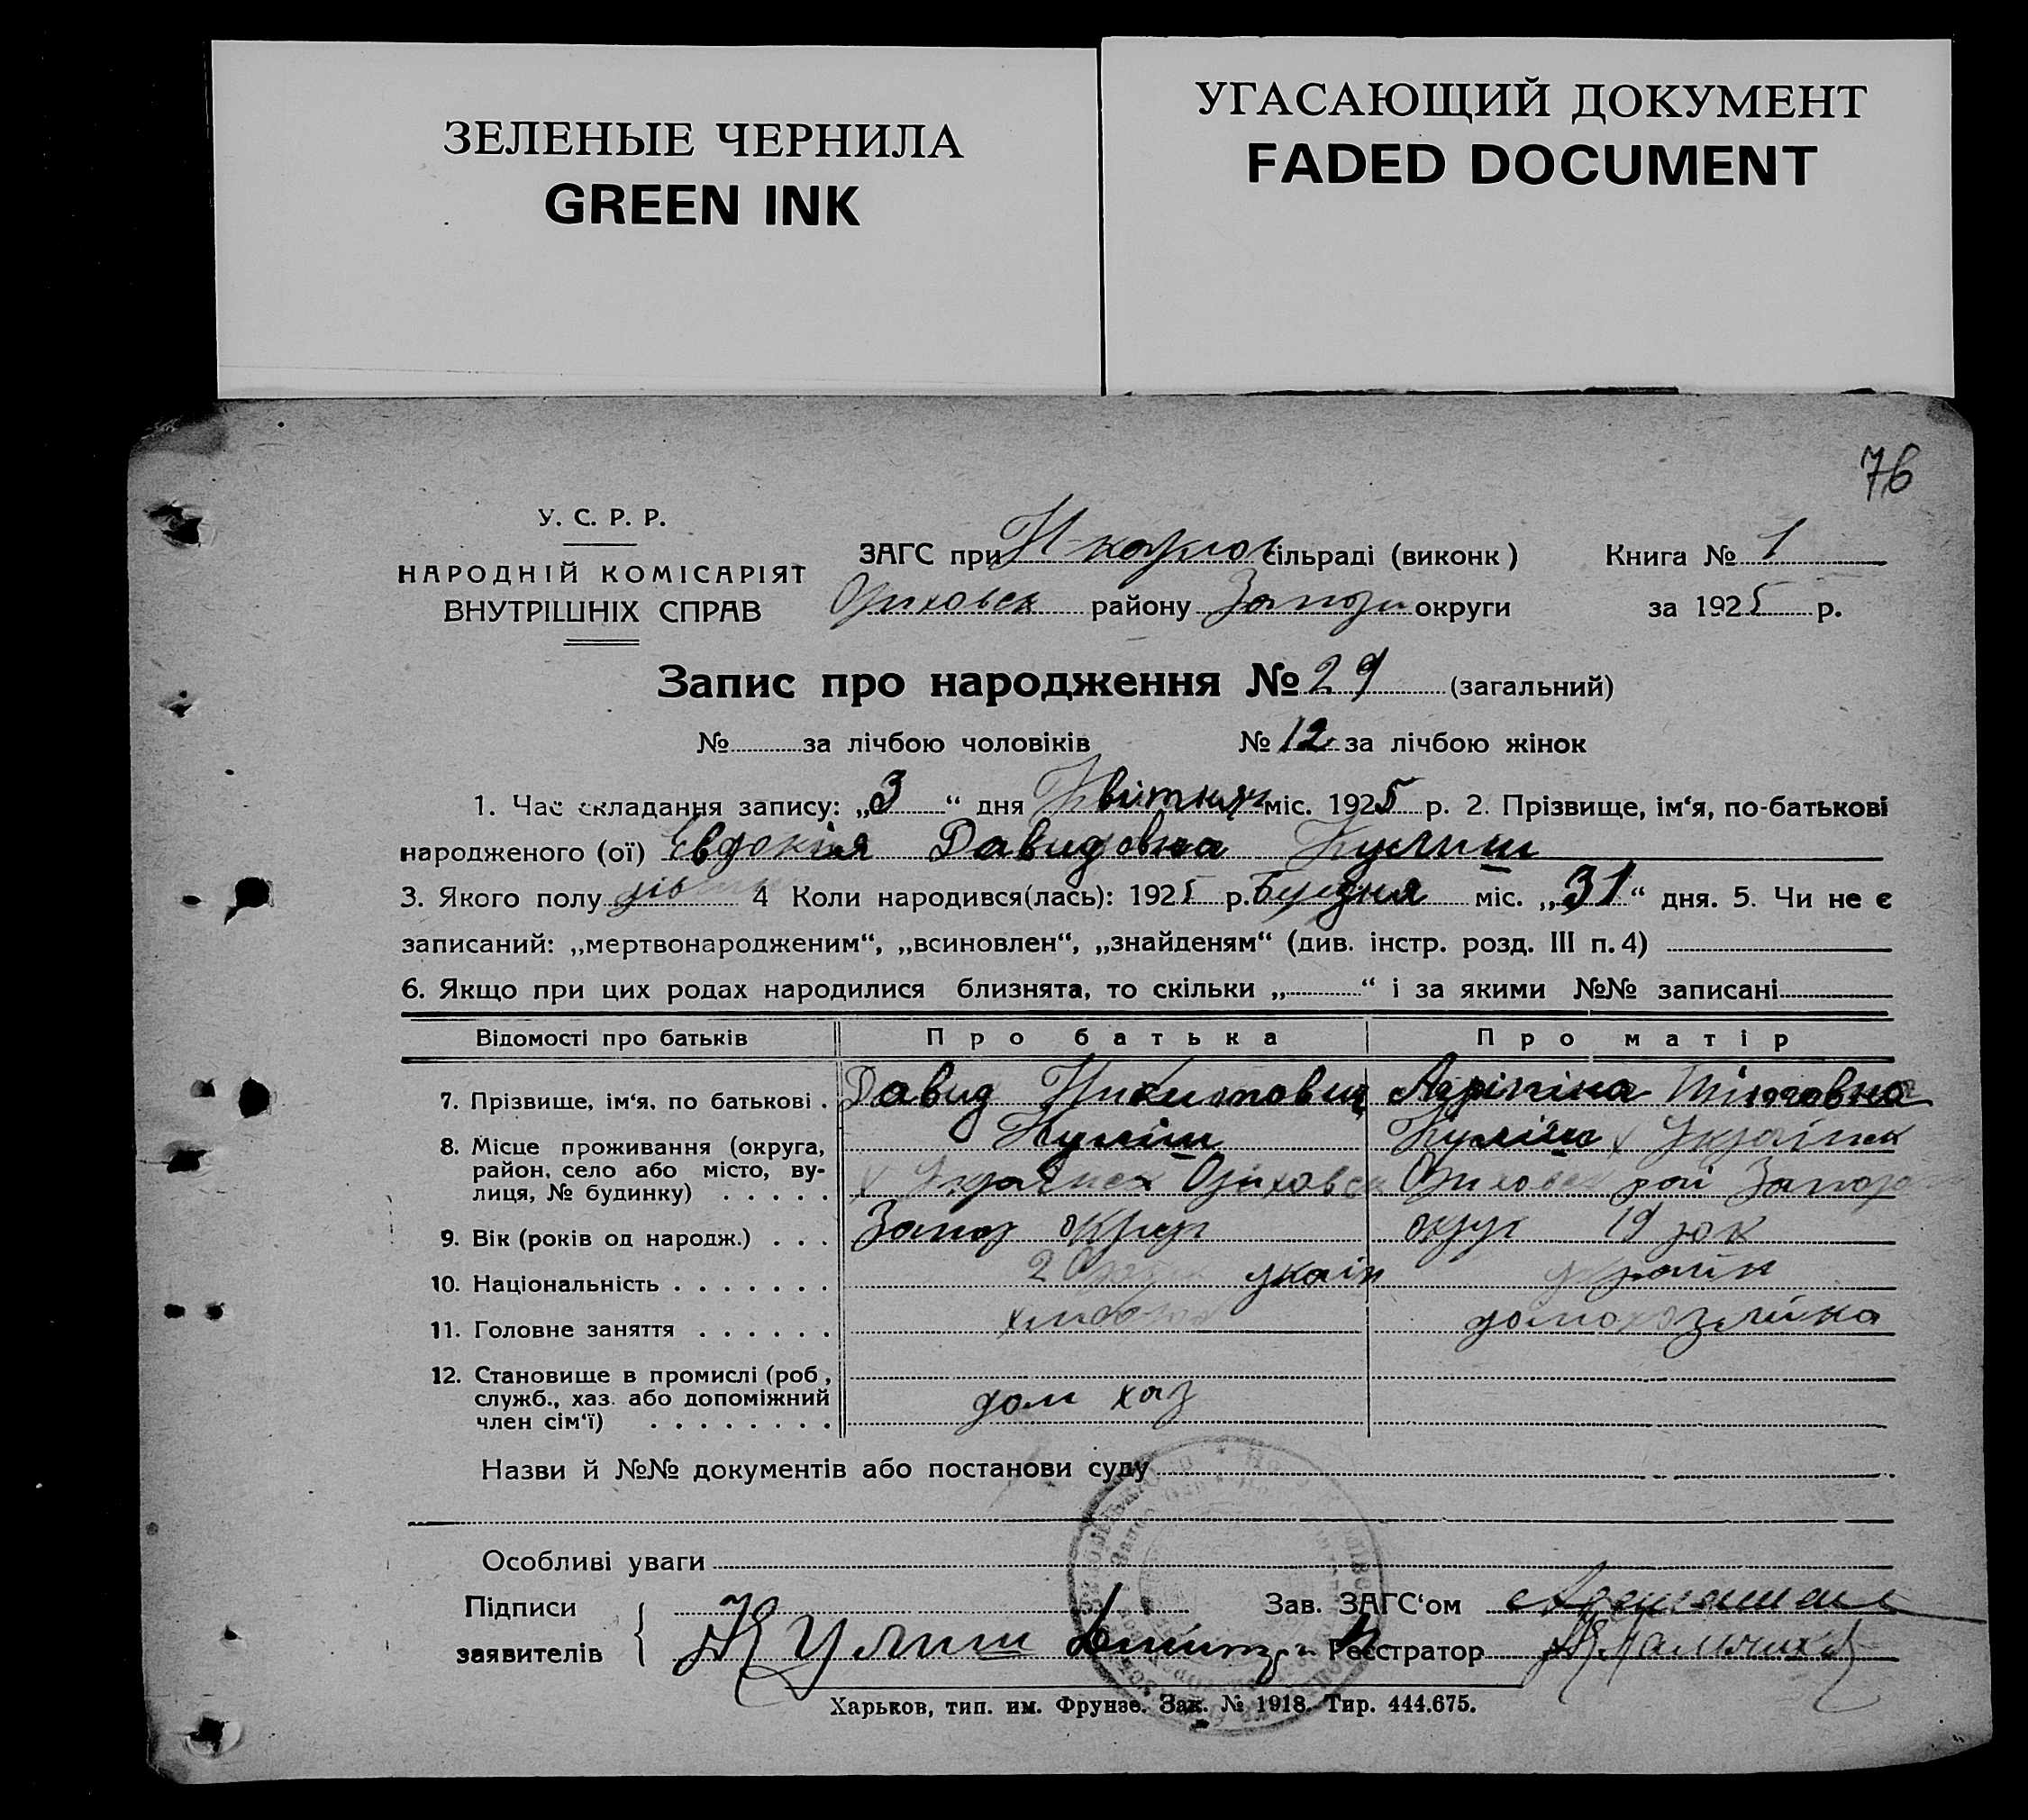 ЗЕЛЕНЫЕ ЧЕРНИЛА
GREEN INK
УГАСАЮЩИЙ ДОКУМЕНТ
FADED DOCUMENT
76
У. С. Р. Р.
НАРОДНІЙ КОМІСАРІЯТ
ВНУТРІШНІХ СПРАВ
ЗАГС при сільраді (виконк) Книга № 1
Оріховск району Запор округи за 1925 р.
Запис про народження № 29 (загальний)
№ за лічбою чоловіків № 12 за лічбою жінок
1. Час складання запису: „3“ дня Квітня міс. 1925 р. 2. Прізвище, ім‘я, по-батькові
народженого (ої) Евдокія Давидовна Кулиш
3. Якого полу дів 4 Коли народився(лась): 1925 р. міс. „31“ дня. 5. Чи не є
записаний: „мертвонародженим“, „всиновлен“, „знайденям“ (див. інстр. розд. III п. 4)
6. Якщо при цих родах народилися близнята, то скільки „ “ і за якими №№ записані
Відомості про батьків Про батька Про матір
7. Прізвище, ім‘я, по батькові . Давид Никитович Агріпіна
8. Місце проживання (округа, Куліш Куліш х Українск
район, село або місто, ву- х Українск Оріховск Оріховск рай Запор
лиця, № будинку) . . . . .
9. Вік (років од народж.) . . . Запор округ округ 19 рок
10. Національність . . . . . . . україн
11. Головне заняття . . . . . . хлибороб домохозяйка
12. Становище в промислі (роб,
служб., хаз. або допоміжний дом хаз
член сім‘ї) . . . . . . . .
Назви й №№ документів або постанови суду
Особливі уваги
Підписи Зав. ЗАГС‘ом
заявителів Кулиш Реєстратор
Харьков, тип. им. Фрунзе. Зак. № 1918. Тир. 444.675.